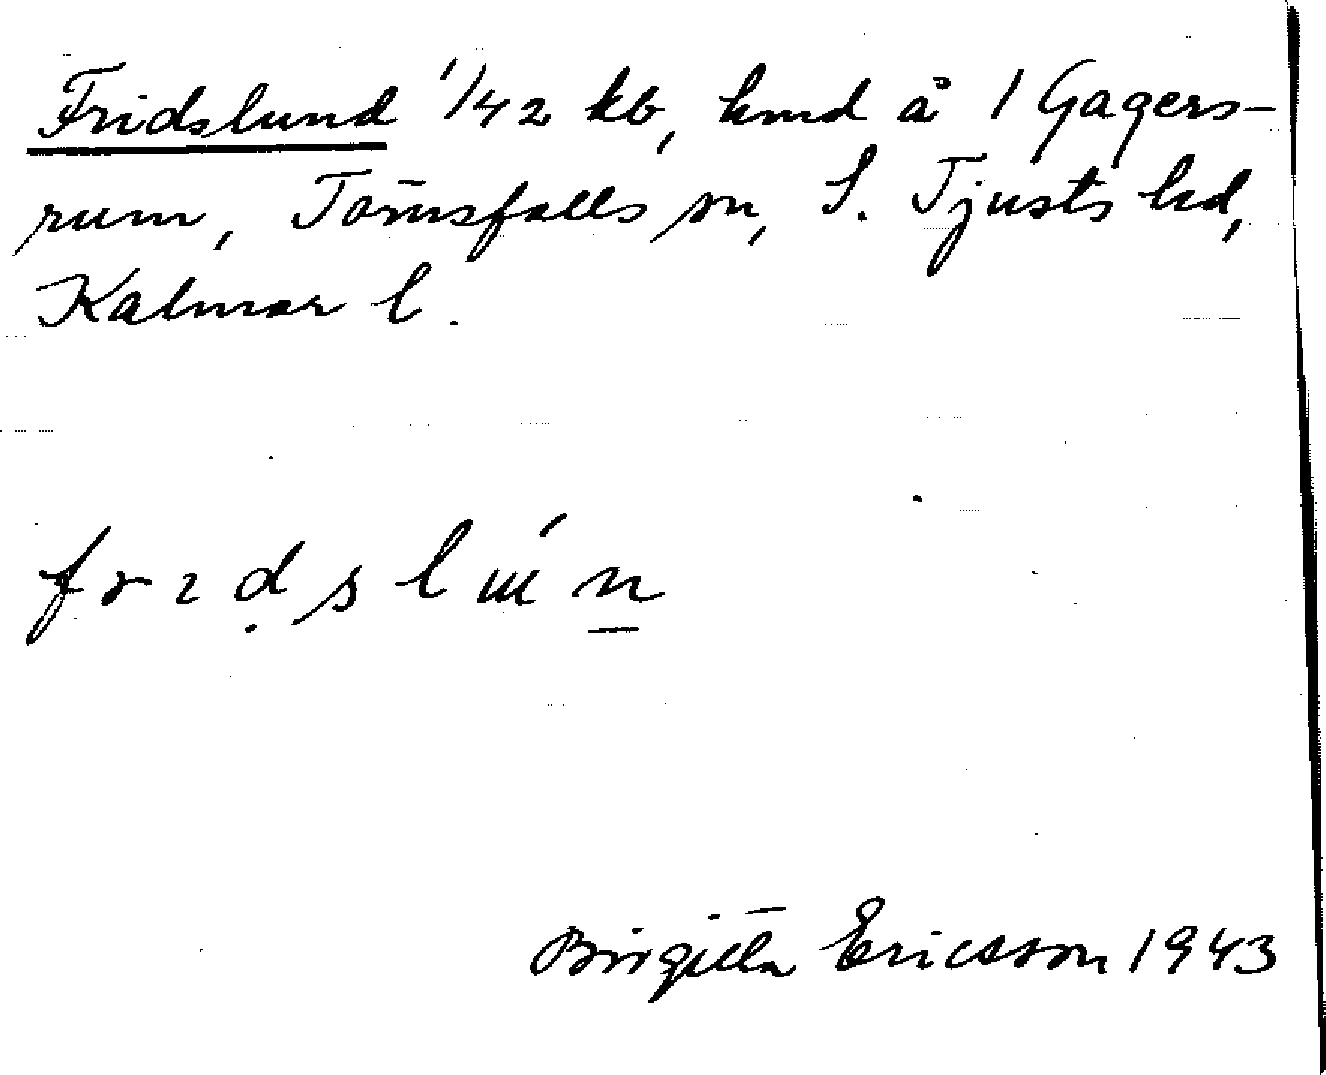 Fridslund 1/42 kb, hmd å 1 Gagers-
rum, Törnsfalls sn, S. Tjusts hd,
Kalmar l.
frɪdsluń
Birgitta Ericsson 1943